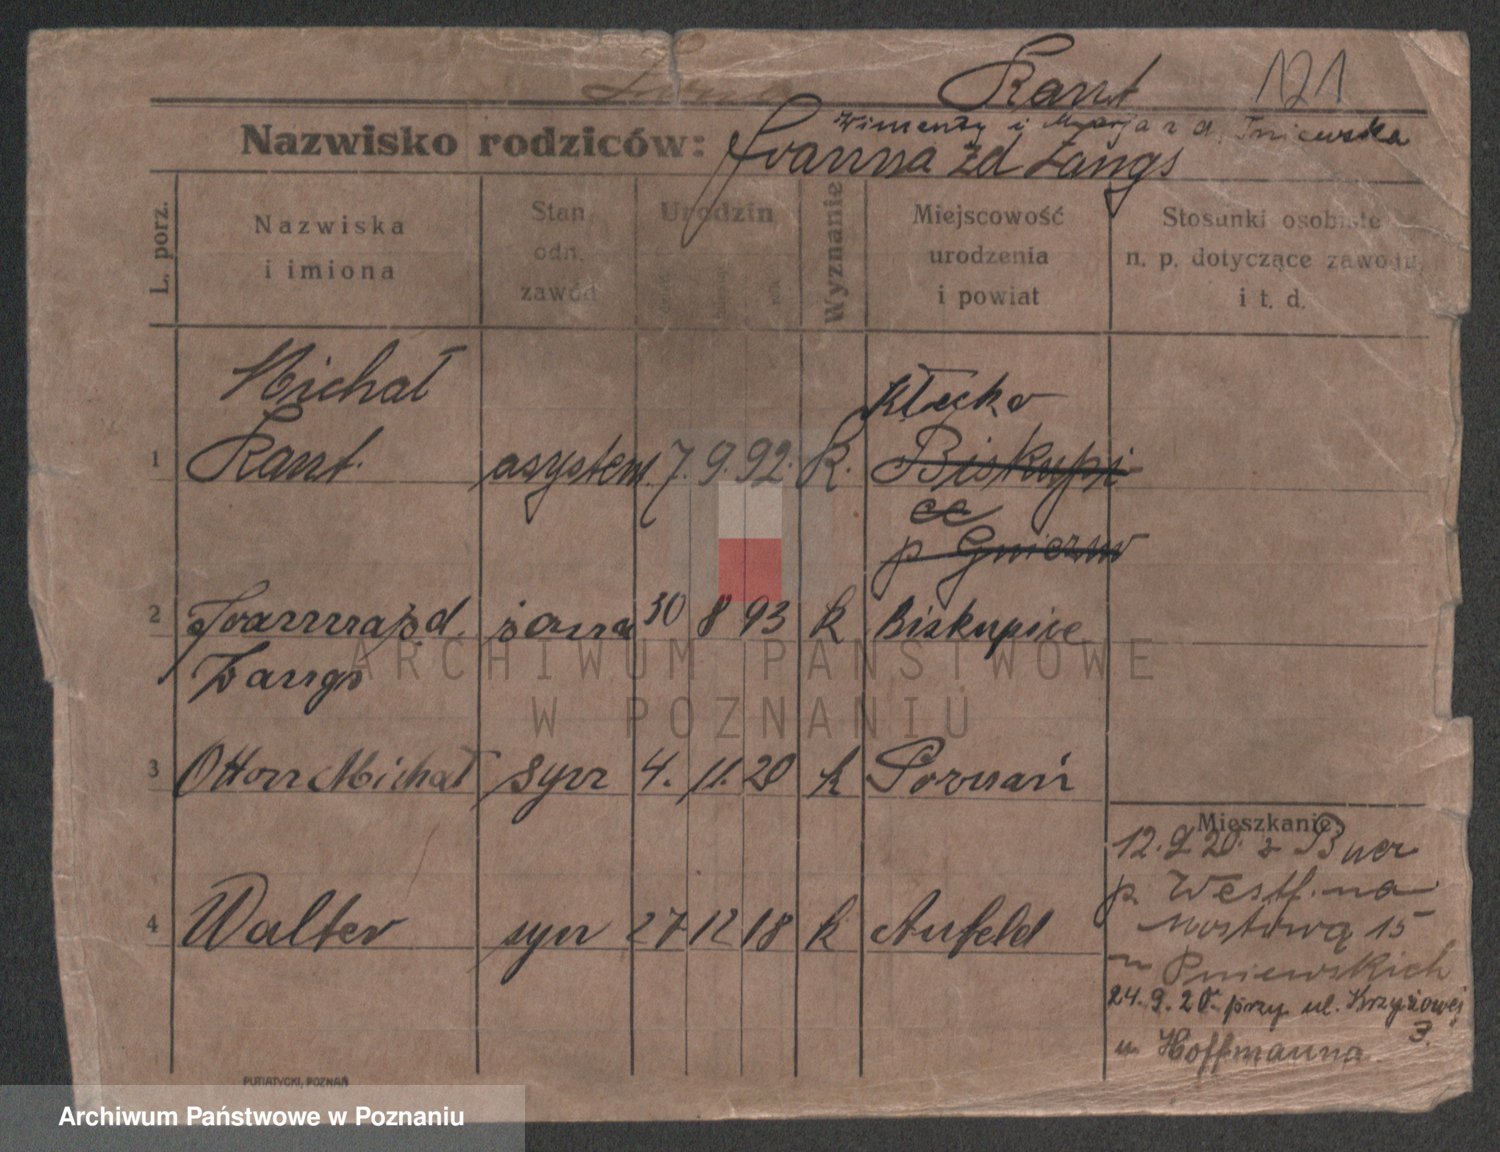 Kant 121
Wincenty i Marja z d. Pniewska
Nazwisko rodziców: Joanna zd Langs
L. porz. Nazwiska i imiona Stan odn. zawód Urodzin Wyznanie Miejscowość urodzenia i powiat Stosunki osobiste n. p. dotyczące zawodu i t. d.
Michał Kłecko
1 Kant. asystent. 7. 9. 92. K. Biskupi
ce
p Gniezno
2 Joanna z d. żona 30 8 93 k Biskupice
Langs
3 Otton Michał syn 4. 11. 20 k Poznań
4 Walter syn 27 12 18 k
Mieszkanie:
12. 9 20. z Buer
p. Westf. na
Mostową 15
u Pniewskich
24. 9. 20. przy ul. Krzyżowej
3.
u Hoffmanna
PUTIATYCKI, POZNAŃ
ARCHIWUM PAŃSTWOWE
W POZNANIU
Archiwum Państwowe w Poznaniu